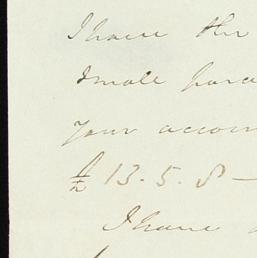 I have the
small parc
your accoun
£ 13.5.8 —
I have